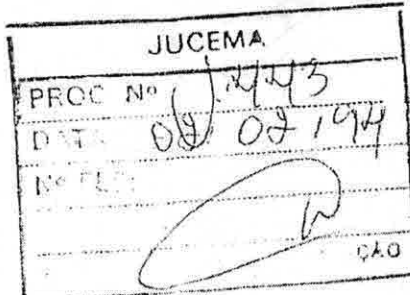 JUCEMA
PROC Nº 1.443
DATA 02 02 194
Nº FL
ÇÃO